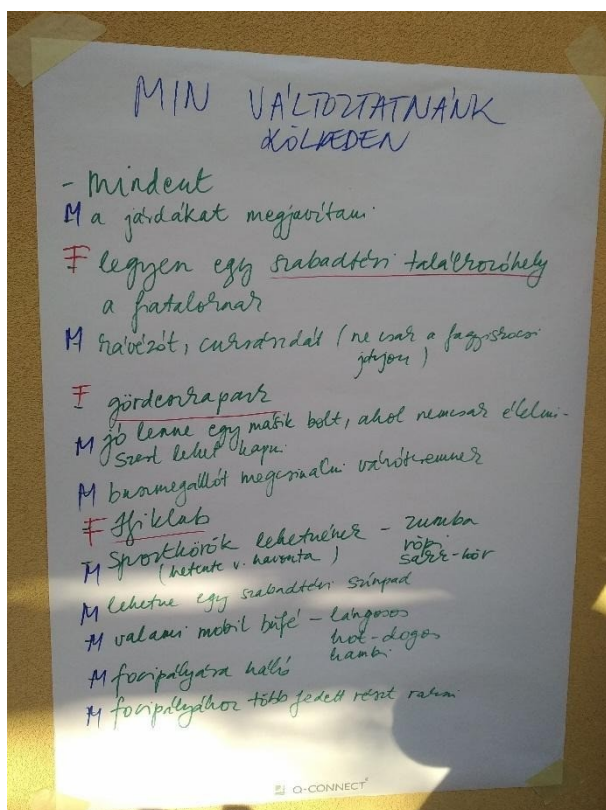 MIN VÁLTOZTATNÁNK
KÖLKEDEN
- Mindent
M a járdákat megjavítani
F legyen egy szabadtéri találkozóhely
a fiataloknak
M kávézót, cukrászdát (ne csak a fagyiskocsi
járjon)
F gördeszkapark
M jó lenne egy másik bolt, ahol nemcsak élelmi-
szert lehet kapni
M buszmegállót megcsinálni váróteremnek
F Ifiklub
- Sportkörök lehetnének - zumba
M (hetente v. havonta) röpi
sakk-kör
M lehetne egy szabadtéri színpad
M valami mobil büfé - lángosos
hot-dogos
hambi
M focipályára háló
M focipályához több fedett részt rakni
Q-CONNECT